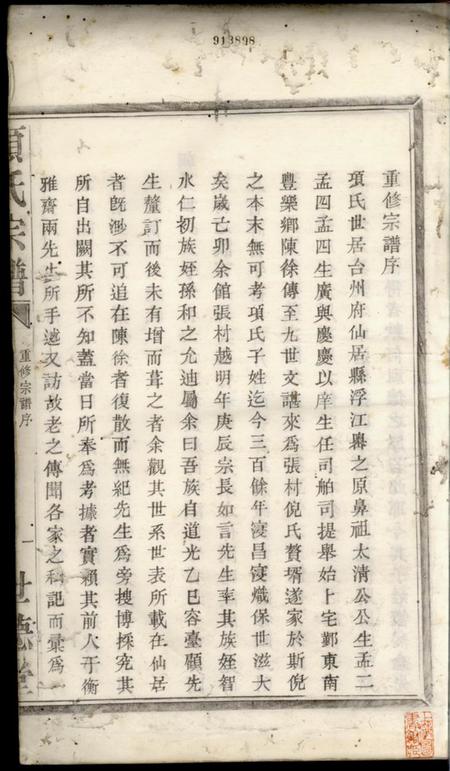 913898
重修宗譜序
項氏世居台州府仙居縣浮江嶴之原鼻祖太清公公生孟二
孟四孟四生廣與慶慶以庠生任司舶司提舉始上宅鄞東南
豐樂鄉陳徐傳至九世文諶來為張村倪氏贅壻遂家於斯倪
之本末無可考項氏子姓迄今三百餘年寖昌寖熾保世滋大
矣歲己卯余館張村越明年庚辰宗長如言先生率其族姪智
水仁初族姪孫和之允迪屬余曰吾族自道光乙巳容臺顧先
生釐訂而後未有增而葺之者余觀其世系世表所載在仙居
者旣渺不可追在陳徐者復散而無紀先生為旁搜博採究其
所自出闕其所不知蓋當日所奉為考據者實賴其前人于衡
雅齋兩先生所手述又訪故老之傳聞各家之私記而彙為一
項氏宗譜
重修宗譜序
一
世德堂